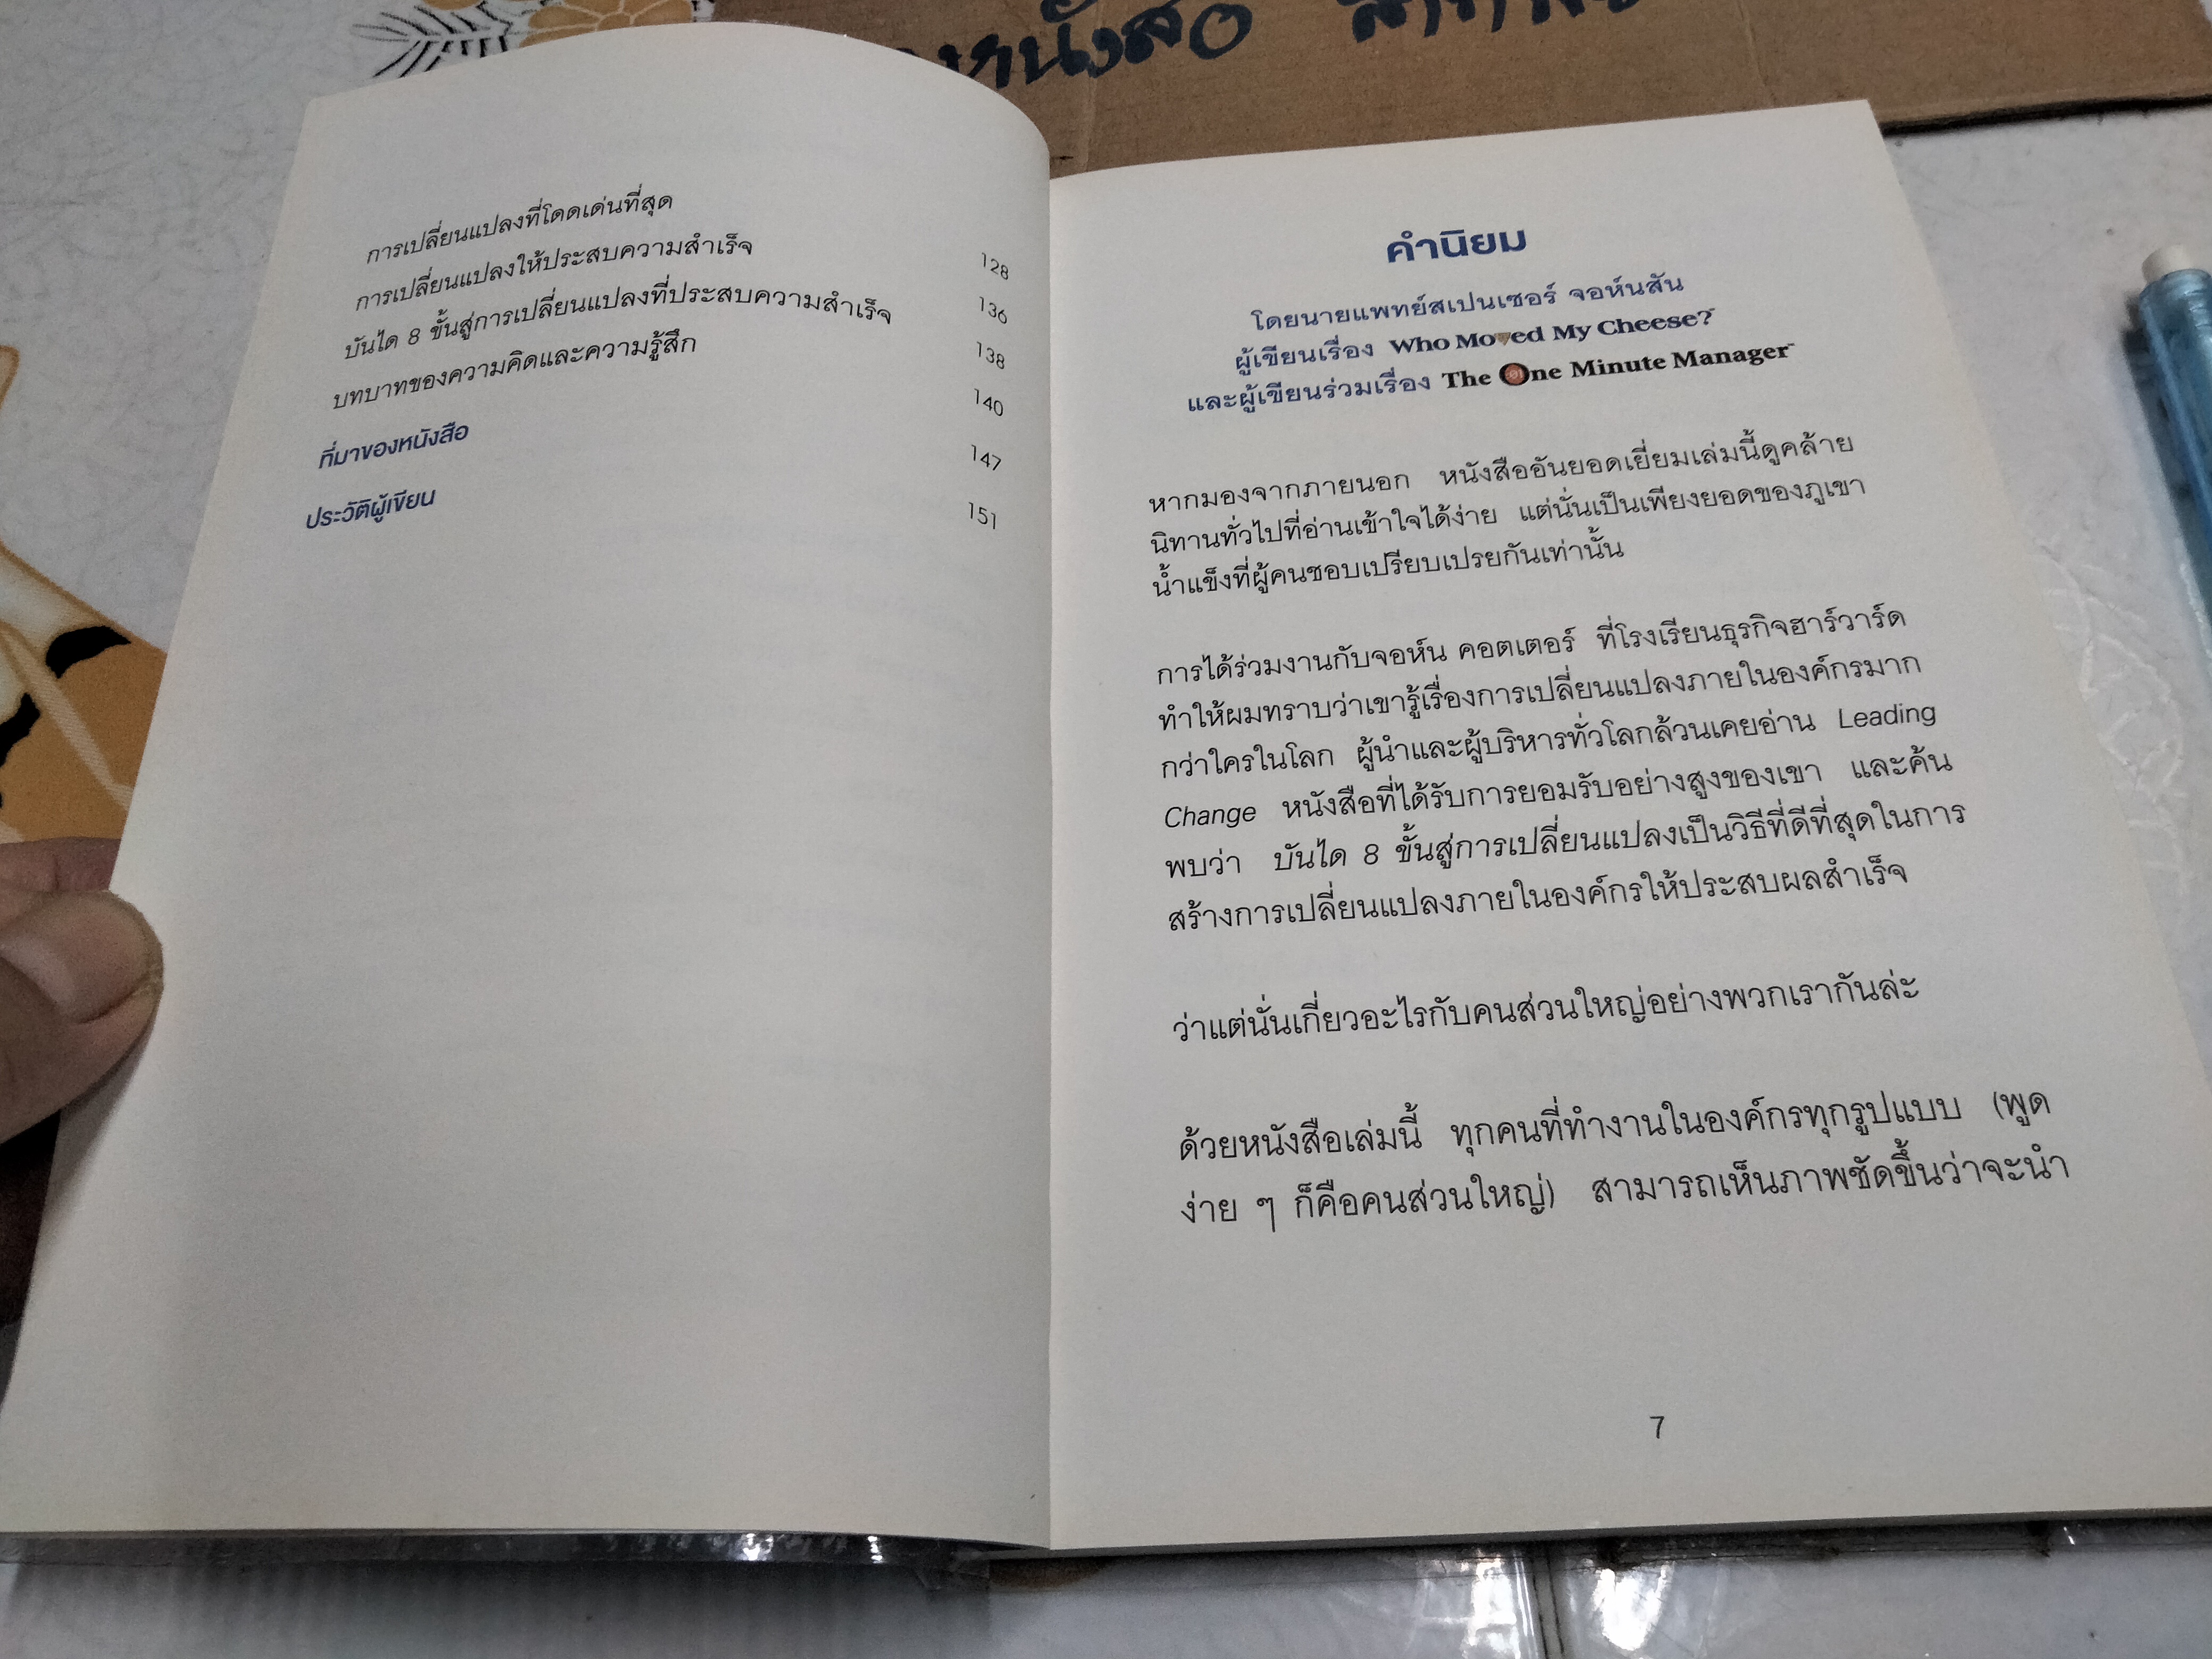 งหนังสือ
การเปลี่ยนแปลงที่โดดเด่นที่สุด 128
การเปลี่ยนแปลงให้ประสบความสำเร็จ 136
บันได 8 ขั้นสู่การเปลี่ยนแปลงที่ประสบความสำเร็จ 138
บทบาทของความคิดและความรู้สึก 140
ที่มาของหนังสือ 147
ประวัติผู้เขียน 151
คำนิยม
โดยนายแพทย์สเปนเซอร์ จอห์นสัน
ผู้เขียนเรื่อง Who Moved My Cheese?
และผู้เขียนร่วมเรื่อง The One Minute Manager
หากมองจากภายนอก หนังสืออันยอดเยี่ยมเล่มนี้ดูคล้าย
นิทานทั่วไปที่อ่านเข้าใจได้ง่าย แต่นั่นเป็นเพียงยอดของภูเขา
น้ำแข็งที่ผู้คนชอบเปรียบเปรยกันเท่านั้น
การได้ร่วมงานกับจอห์น คอตเตอร์ ที่โรงเรียนธุรกิจฮาร์วาร์ด
ทำให้ผมทราบว่าเขารู้เรื่องการเปลี่ยนแปลงภายในองค์กรมาก
กว่าใครในโลก ผู้นำและผู้บริหารทั่วโลกล้วนเคยอ่าน Leading
Change หนังสือที่ได้รับการยอมรับอย่างสูงของเขา และค้น
พบว่า บันได 8 ขั้นสู่การเปลี่ยนแปลงเป็นวิธีที่ดีที่สุดในการ
สร้างการเปลี่ยนแปลงภายในองค์กรให้ประสบผลสำเร็จ
ว่าแต่นั่นเกี่ยวอะไรกับคนส่วนใหญ่อย่างพวกเรากันล่ะ
ด้วยหนังสือเล่มนี้ ทุกคนที่ทำงานในองค์กรทุกรูปแบบ (พูด
ง่าย ๆ ก็คือคนส่วนใหญ่) สามารถเห็นภาพชัดขึ้นว่าจะนำ
7